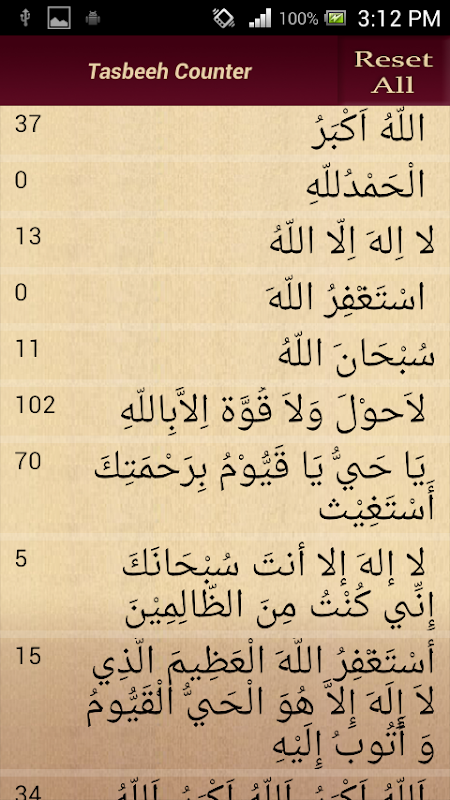 100% 3:12 PM
Tasbeeh Counter
Reset
All
37
اللّهُ اَكْبَرُ
0
الْحَمْدُللّهِ
13
لا اِلهَ اِلّا اللّهُ
0
اسْتَغْفِرُ اللّهَ
11
سُبْحَانَ اللّهُ
102
لاَحوْلَ وَلاَ قُوَّة اِلاَّبِاللّهِ
70
يَا حَيُّ يَا قَيُّوْمُ بِرَحْمَتِكَ
أَسْتَغِيْث
5
لا إلهَ إلا أنتَ سُبْحَانَكَ
إِنِّي كُنْتُ مِنَ الظَّالِمِيْنَ
15
أَسْتَغْفِرُ اللّهَ الْعَظِيمَ الَّذِي
لاَ إِلَهَ إِلاَّ هُوَ الْحَيُّ الْقَيُّومُ
وَ أَتُوبُ إِلَيْهِ
34
اَللّهُ اَكْبَرُ اَللّهُ اَكْبَرُ اَللّهُ